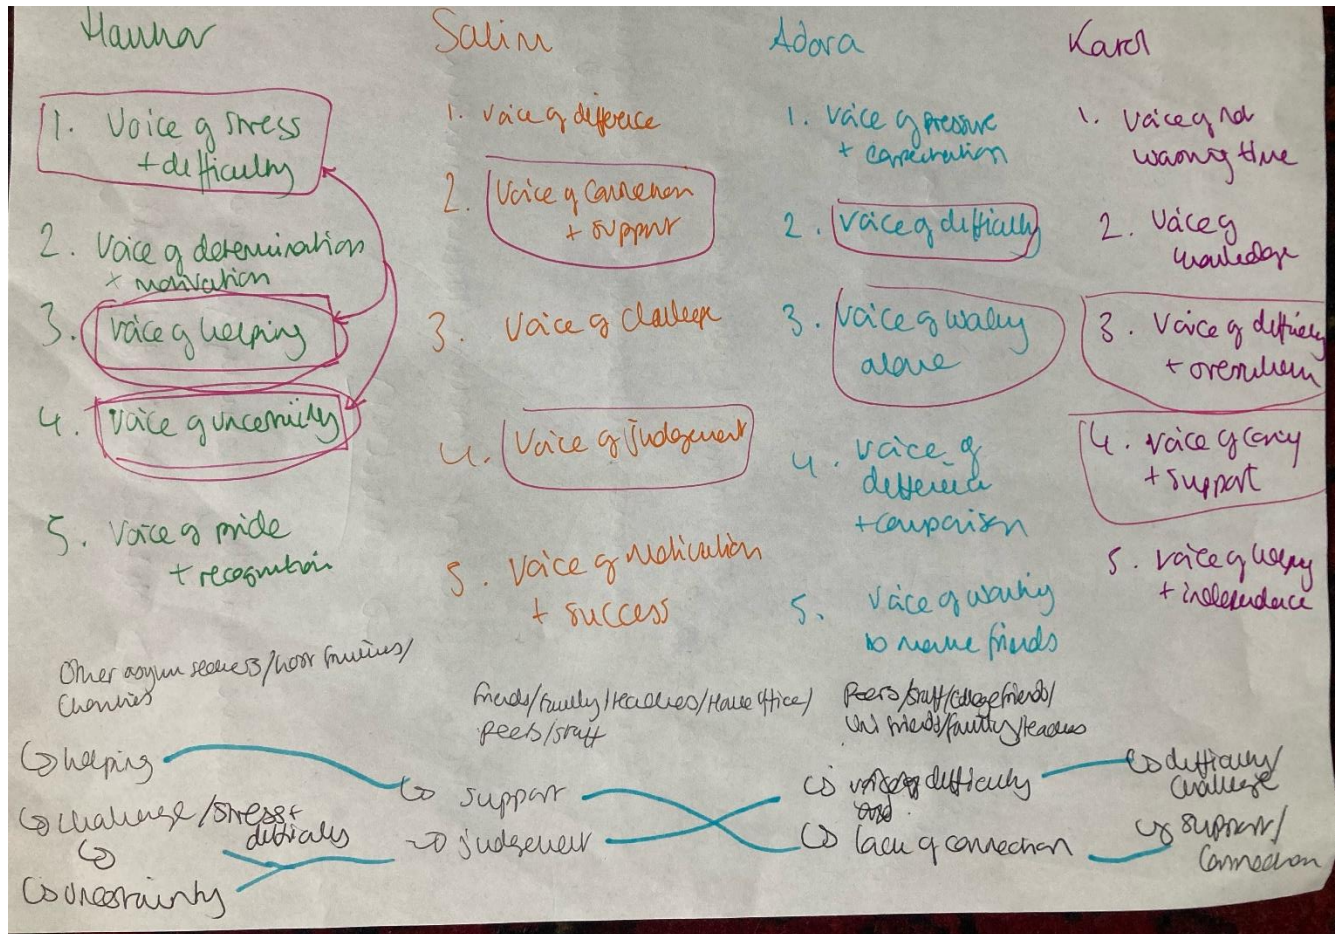 Hannah
1. Voice of stress
+ difficulty
2. Voice of determination
+ motivation
3. Voice of helping
4. Voice of uncertainty
5. Voice of pride
+ recognition
Other asylum seekers/host families/
Charities
↳ helping
↳ challenge/stress+
difficulty
↳
↳ uncertainty
Salim
1. Voice of difference
2. Voice of Connection
+ support
3. Voice of Challenge
4. Voice of judgement
5. Voice of Motivation
+ success
friends/family/teachers/Home Office/
peers/staff
↳ support
↳ judgement
Adora
1. Voice of pressure
+ expectation
2. Voice of difficulty
3. Voice of
alone
4. Voice of
difference
+ comparison
5. Voice of wanting
to make friends
peers/staff/college friends/
Uni friends/family/teachers
↳ voice of difficulty
↳ lack of connection
Karol
1. Voice of not
wasting time
2. Voice of
knowledge
3. Voice of difficulty
+ overwhelm
4. Voice of caring
+ support
5. Voice of helping
+ independence
↳ difficulty/
Challenge
↳ support/
Connection